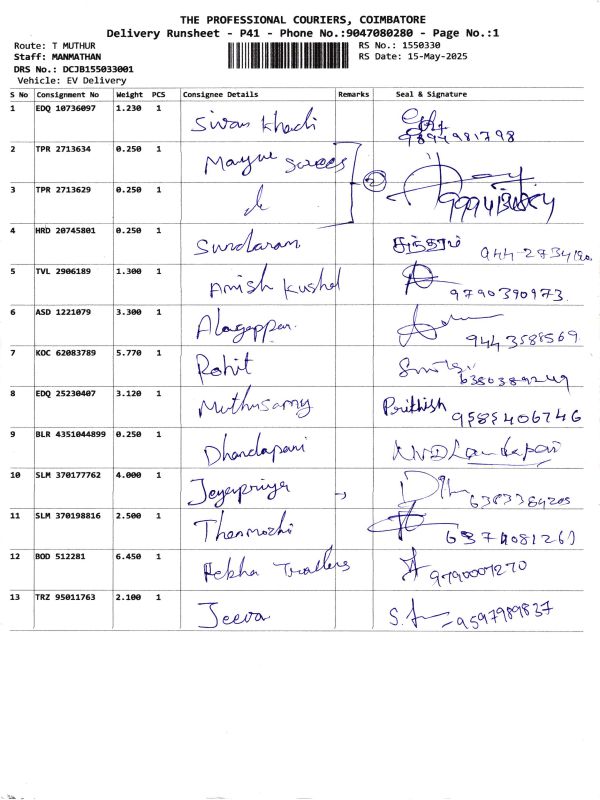 THE PROFESSIONAL COURIERS, COIMBATORE
Delivery Runsheet - P41 - Phone No.:9047080280 - Page No.:1
Route: T MUTHUR RS No.: 1550330
Staff: MANMATHAN RS Date: 15-May-2025
DRS No.: DCJB155033001
Vehicle: EV Delivery
S No Consignment No Weight PCS Consignee Details Remarks Seal & Signature
1 EDQ 10736097 1.230 1 Sivan Khadi 9894981798
2 TPR 2713634 0.250 1 Mayur Sarees 2
3 TPR 2713629 0.250 1
4 HRD 20745801 0.250 1 Sundaram சுந்தரம்
5 TVL 2906189 1.300 1 Amish Kushal 9790390973
6 ASD 1221079 3.300 1 Alagappan 9443588569
7 KOC 62083789 5.770 1 Rohit
8 EDQ 25230407 3.120 1 Muthusamy Prithish 9585406746
9 BLR 4351044899 0.250 1 Dhandapani
10 SLM 370177762 4.000 1 Jeyapriya
11 SLM 370198816 2.500 1 Thenmozhi 6374081261
12 BOD 512281 6.450 1 Traders 9790007270
13 TRZ 95011763 2.100 1 Jeeva 9597989837